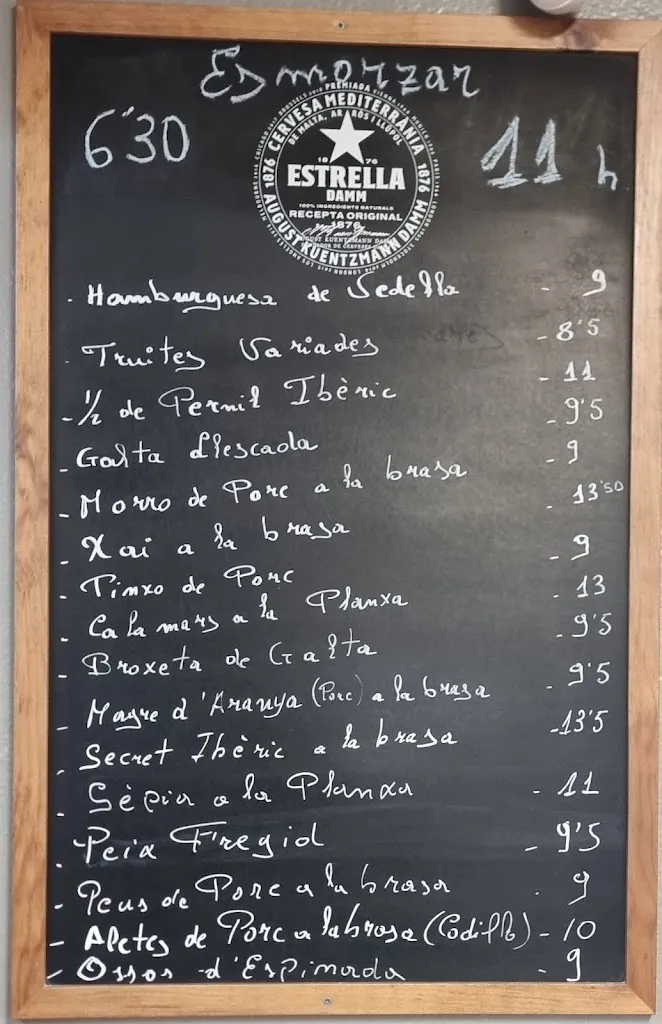 Esmorzar
6'30
11 h
PREMIADA
CERVESA MEDITERRÀNIA
DE MALTA, ARRÒS I LLÚPOL
1876
1876
18 76
ESTRELLA
DAMM
100% INGREDIENTS NATURALS
RECEPTA ORIGINAL
1876
AUGUST KUENTZMANN DAMM
. Hamburguesa de Vedella - 9
. Truites Variades - 8'5
- 1/2 de Pernil Ibèric - 11
- Galta Llescada - 9'5
- Morro de Porc a la brasa - 9
- Xai a la brasa - 13'50
- Pinxo de Porc - 9
- Calamars a la Planxa - 13
- Broxeta de Galta - 9'5
- Magre d'Aranya (Porc) a la brasa - 9'5
- Secret Ibèric a la brasa - 13'5
- Sèpia a la Planxa - 11
- Peix Fregid - 9'5
- Peus de Porc a la brasa - 9
- Aletes de Porc a la brasa (Codillo) - 10
- Ossos d'Espinada - 9